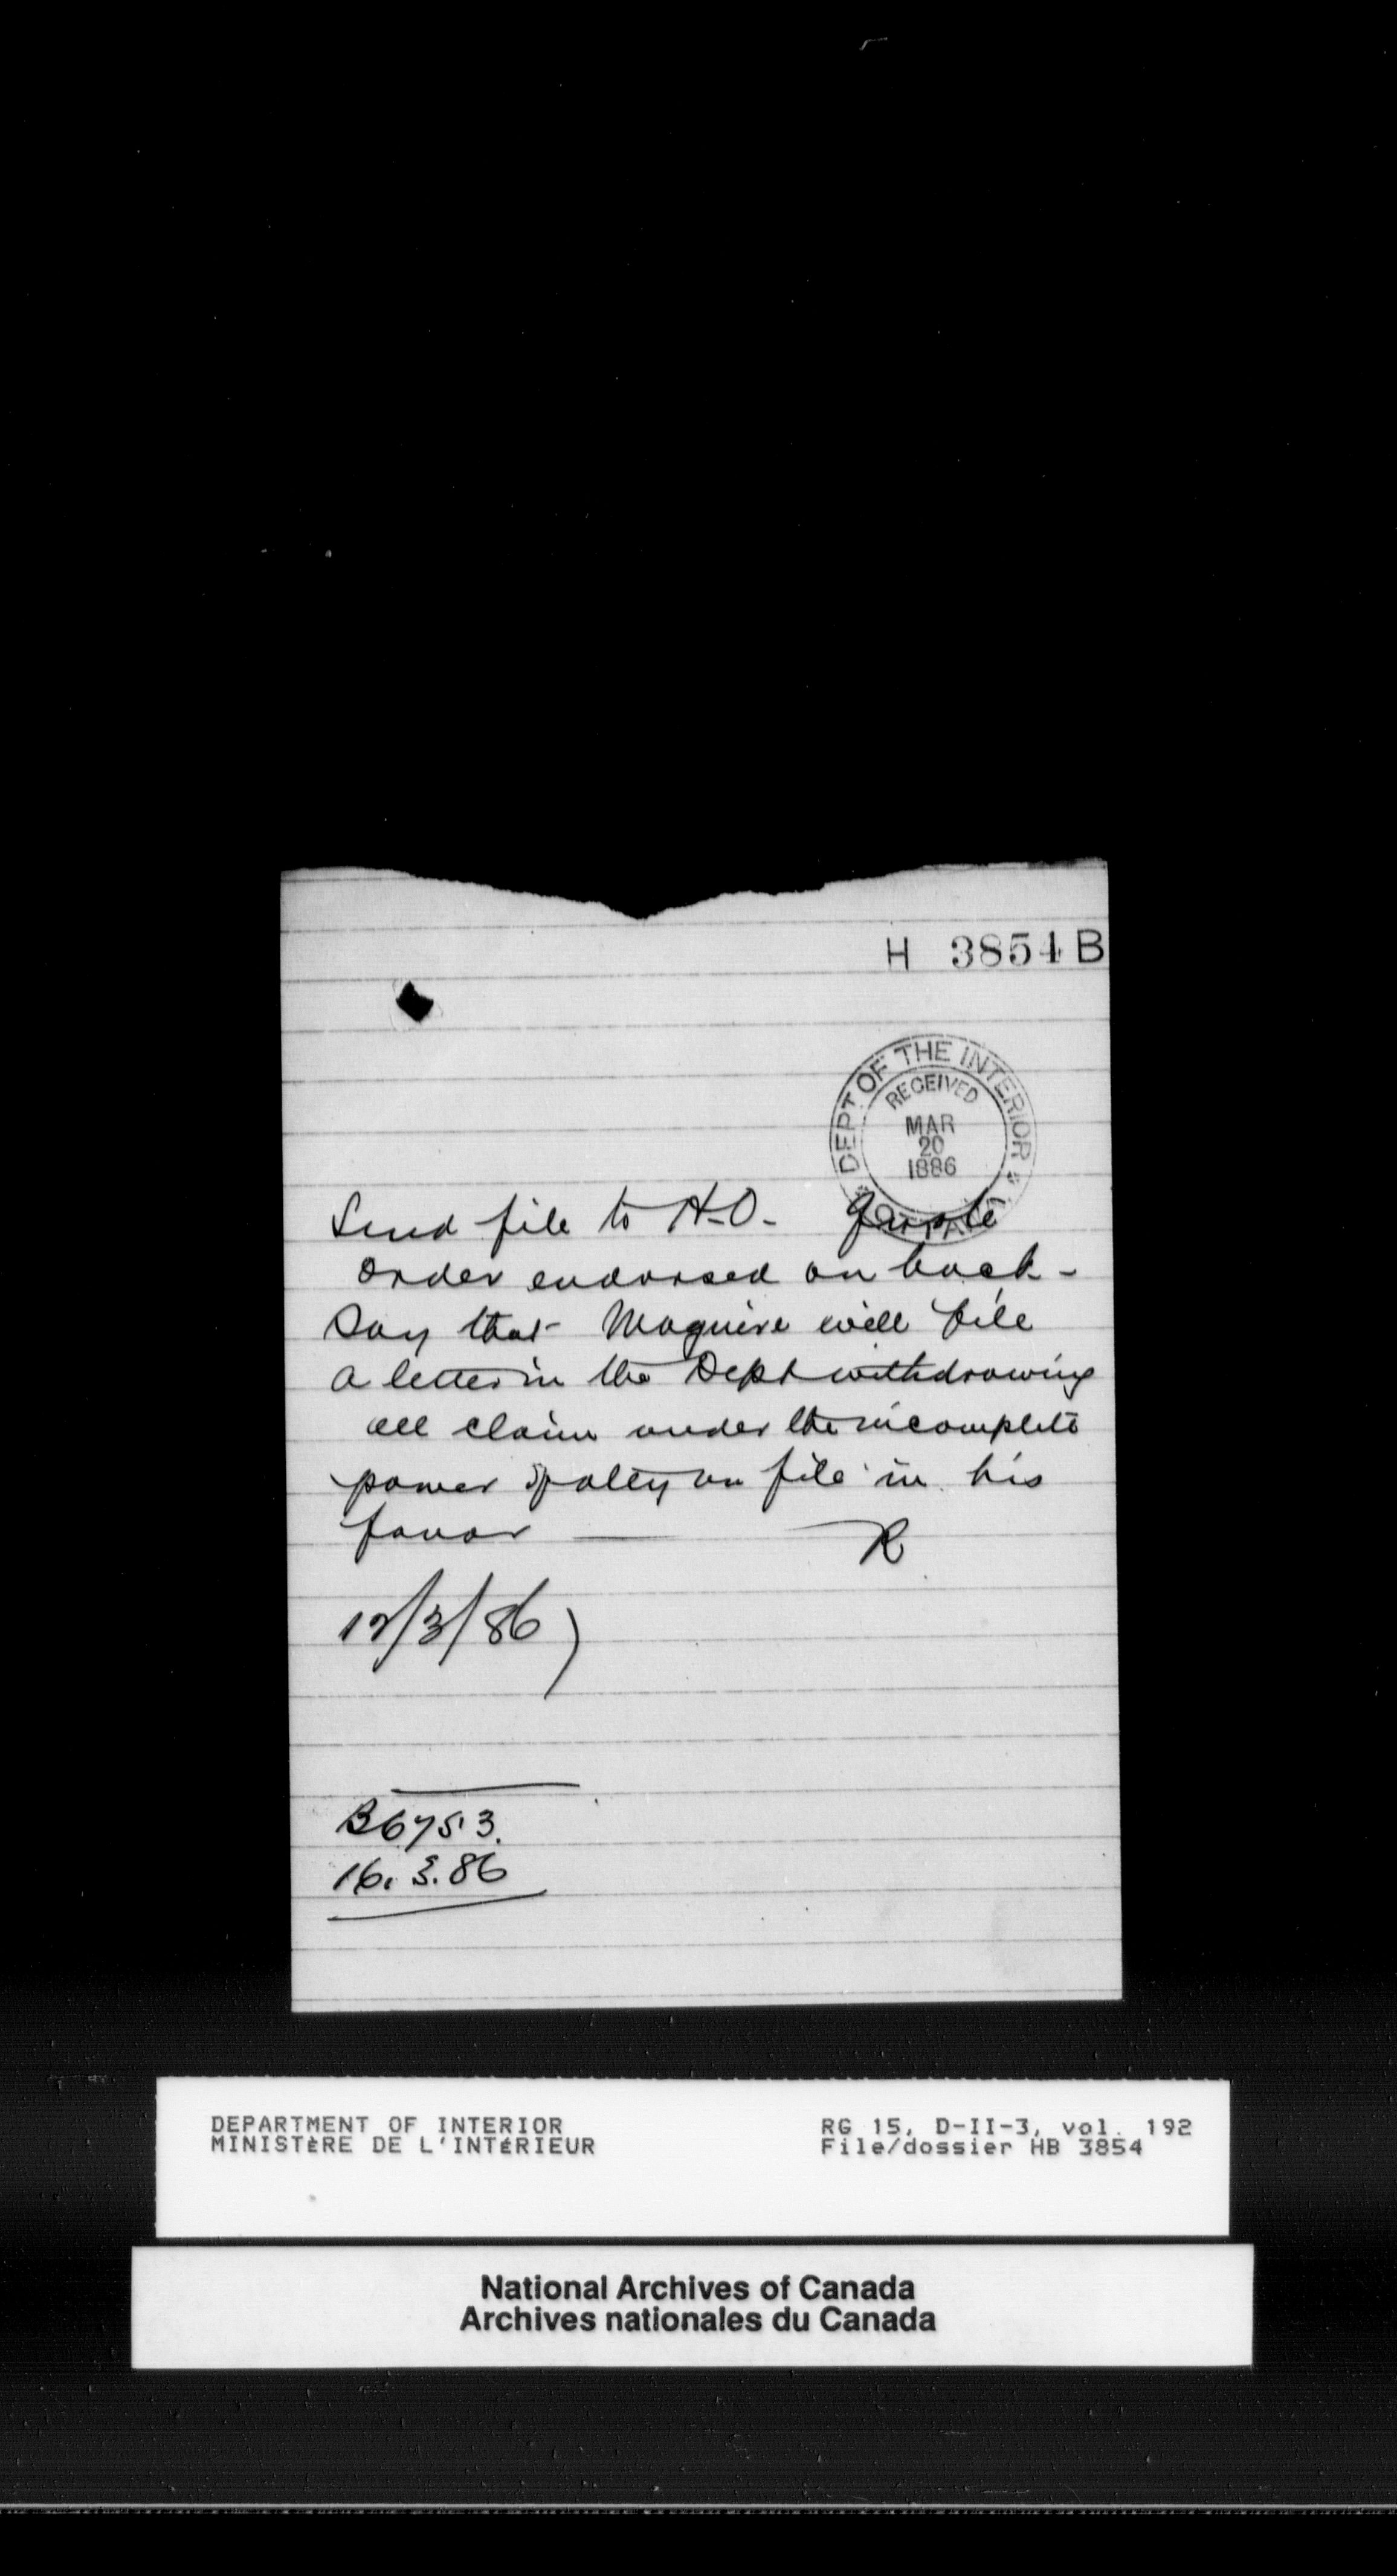 H 3854 B
DEPT OF THE INTERIOR
RECEIVED
MAR
20
1886
OTTAWA
Send file to H.O. Quote
order endorsed on back -
Say that Maguire will file
a letter in the Dept withdrawing
all claim under the incomplete
power of atty on file in his
favor — R
12/3/86)
B6753.
16.3.86
DEPARTMENT OF INTERIOR
MINISTÈRE DE L'INTÉRIEUR
RG 15, D-II-3, vol. 192
File/dossier HB 3854
National Archives of Canada
Archives nationales du Canada